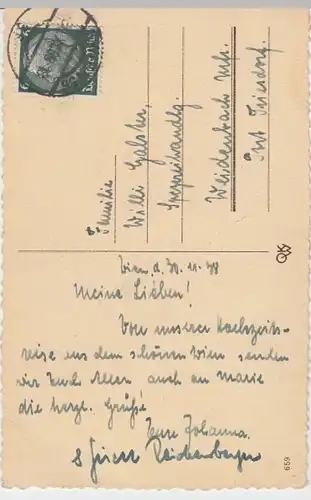 Familie
Willi Galster,
Spezereihandlg.
Weidenbach
Post Triesdorf.
Wien, d. 30.11.38
Meine Lieben!
Von unserer Hochzeits-
reise aus dem schönen Wien senden
wir Euch Allen auch an Marie
die herzl. Grüße
Eure Johanna
Reichenberger
659